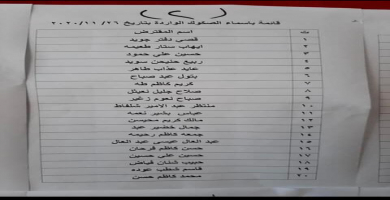 (٢)
قائمة باسماء الصكوك الواردة بتاريخ ٢٠٢٠/١١/٢٦
ت اسم المقترض
١ قصي دفتر جويد
٢ ايهاب ستار طعيمه
٣ حسين علي حمود
٤ ربيع حنيحن سويد
٥ عايد عذاب طاهر
٦ بتول عبد صباح
٧ كريم كاظم طه
٨ صلاح جليل نعيثل
٩ صباح نعوم زغير
١٠ منتظر عبد الامير شلغاط
١١ عباس بشير نعمه
١٢ مالك كريم محيسن
١٣ جمال خضير عبد
١٤ جمعه كاظم رحيمه
١٥ عبد العال عيسى عبد العال
١٦ حسن كاظم فرحان
١٧ حسين علي حسين
١٨ حبيب شنان فياض
١٩ قاسم شطب عوده
٢٠ محمد كاظم حسن